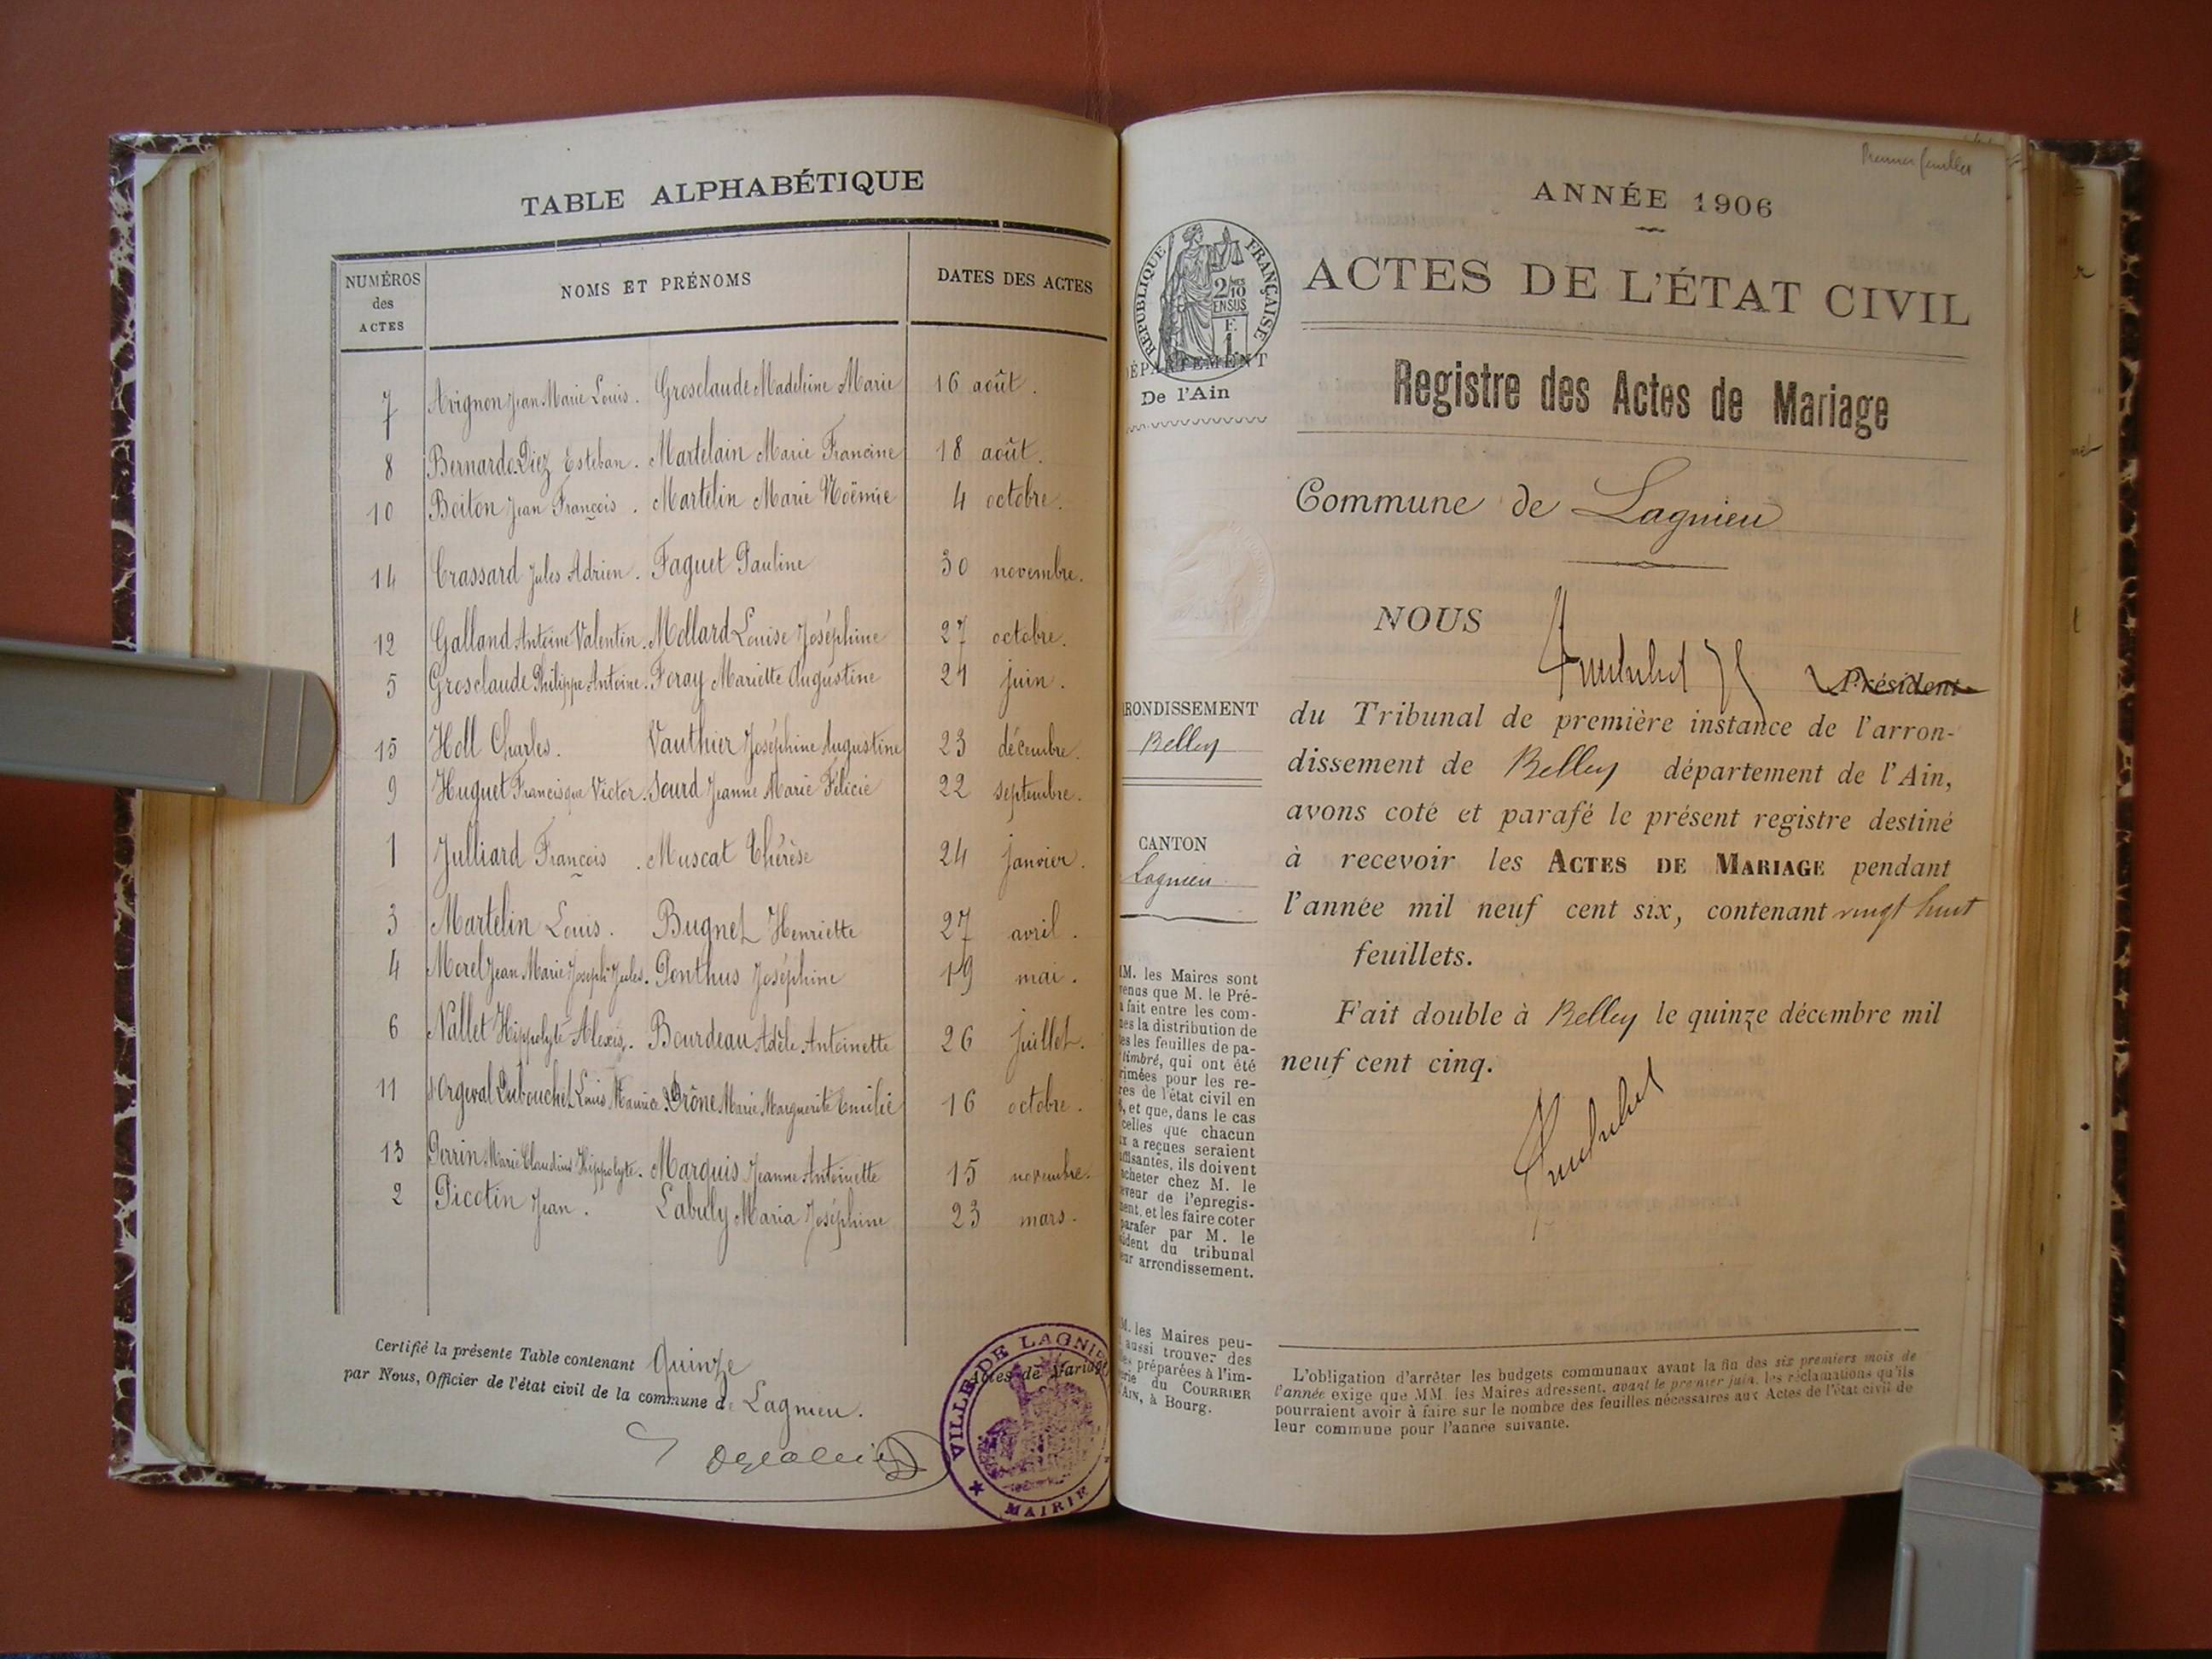 TABLE ALPHABÉTIQUE
NUMÉROS
des
ACTES
NOMS ET PRÉNOMS
DATES DES ACTES
7 Avignon Jean Marie Louis. Grosclaude Madeleine Marie 16 août.
8 Bernardo Diez Esteban. Martelain Marie Francine 18 août.
10 Boiton Jean François. Martelin Marie Noëmie 4 octobre.
14 Crassard Jules Adrien. Faguet Pauline 30 novembre.
12 Galland Antoine Valentin. Mollard Louise Joséphine 27 octobre.
5 Grosclaude Philippe Antoine. Foray Mariette Augustine 21 juin.
15 Holl Charles. Vauthier Joséphine Augustine 23 décembre.
9 Huguet Francisque Victor. Sourd Jeanne Marie Félicie 22 septembre.
1 Julliard François. Muscat Thérèse 24 janvier.
3 Martelin Louis. Bugnet Henriette 27 avril.
4 Morel Jean Marie Joseph Jules. Ponthus Joséphine 19 mai.
6 Nallet Hippolyte Alexis. Bourdeau Adèle Antoinette 26 juillet.
11 d'Orgeval Dubouchet Louis Maurice. Drône Marie Marguerite Emilie 16 octobre.
13 Perrin Marie Claudius Hippolyte. Marquis Jeanne Antoinette 15 novembre.
2 Picotin Jean. Labuly Maria Joséphine 23 mars.
Certifié la présente Table contenant Quinze
Actes de Mariage
par Nous, Officier de l'état civil de la commune de Lagnieu.
VILLE DE LAGNIE
MAIRIE
Premier feuillet
ANNÉE 1906
RÉPUBLIQUE FRANÇAISE
2/10
EN SUS
F.
1
ACTES DE L'ÉTAT CIVIL
ÉPARTEMENT
De l'Ain
Registre des Actes de Mariage
Commune de Lagnieu
NOUS
Président
RONDISSEMENT
Belley
CANTON
Lagnieu
du Tribunal de première instance de l'arron-
dissement de Belley département de l'Ain,
avons coté et parafé le présent registre destiné
à recevoir les ACTES DE MARIAGE pendant
l'année mil neuf cent six, contenant vingt huit
feuillets.
Fait double à Belley le quinze décembre mil
neuf cent cinq.
MM. les Maires sont
venus que M. le Pré-
a fait entre les com-
nes la distribution de
es les feuilles de pa-
timbré, qui ont été
rimées pour les re-
res de l'état civil en
, et que, dans le cas
celles que chacun
x a reçues seraient
ffisantes, ils doivent
acheter chez M. le
eveur de l'enregis-
ment, et les faire coter
parafer par M. le
sident du tribunal
eur arrondissement.
M. les Maires peu-
aussi trouver des
les préparées à l'im-
erie du COURRIER
l'AIN, à Bourg.
L'obligation d'arrêter les budgets communaux avant la fin des six premiers mois de
l'année exige que MM. les Maires adressent, avant le premier juin, les réclamations qu'ils
pourraient avoir à faire sur le nombre des feuilles nécessaires aux Actes de l'état civil de
leur commune pour l'année suivante.